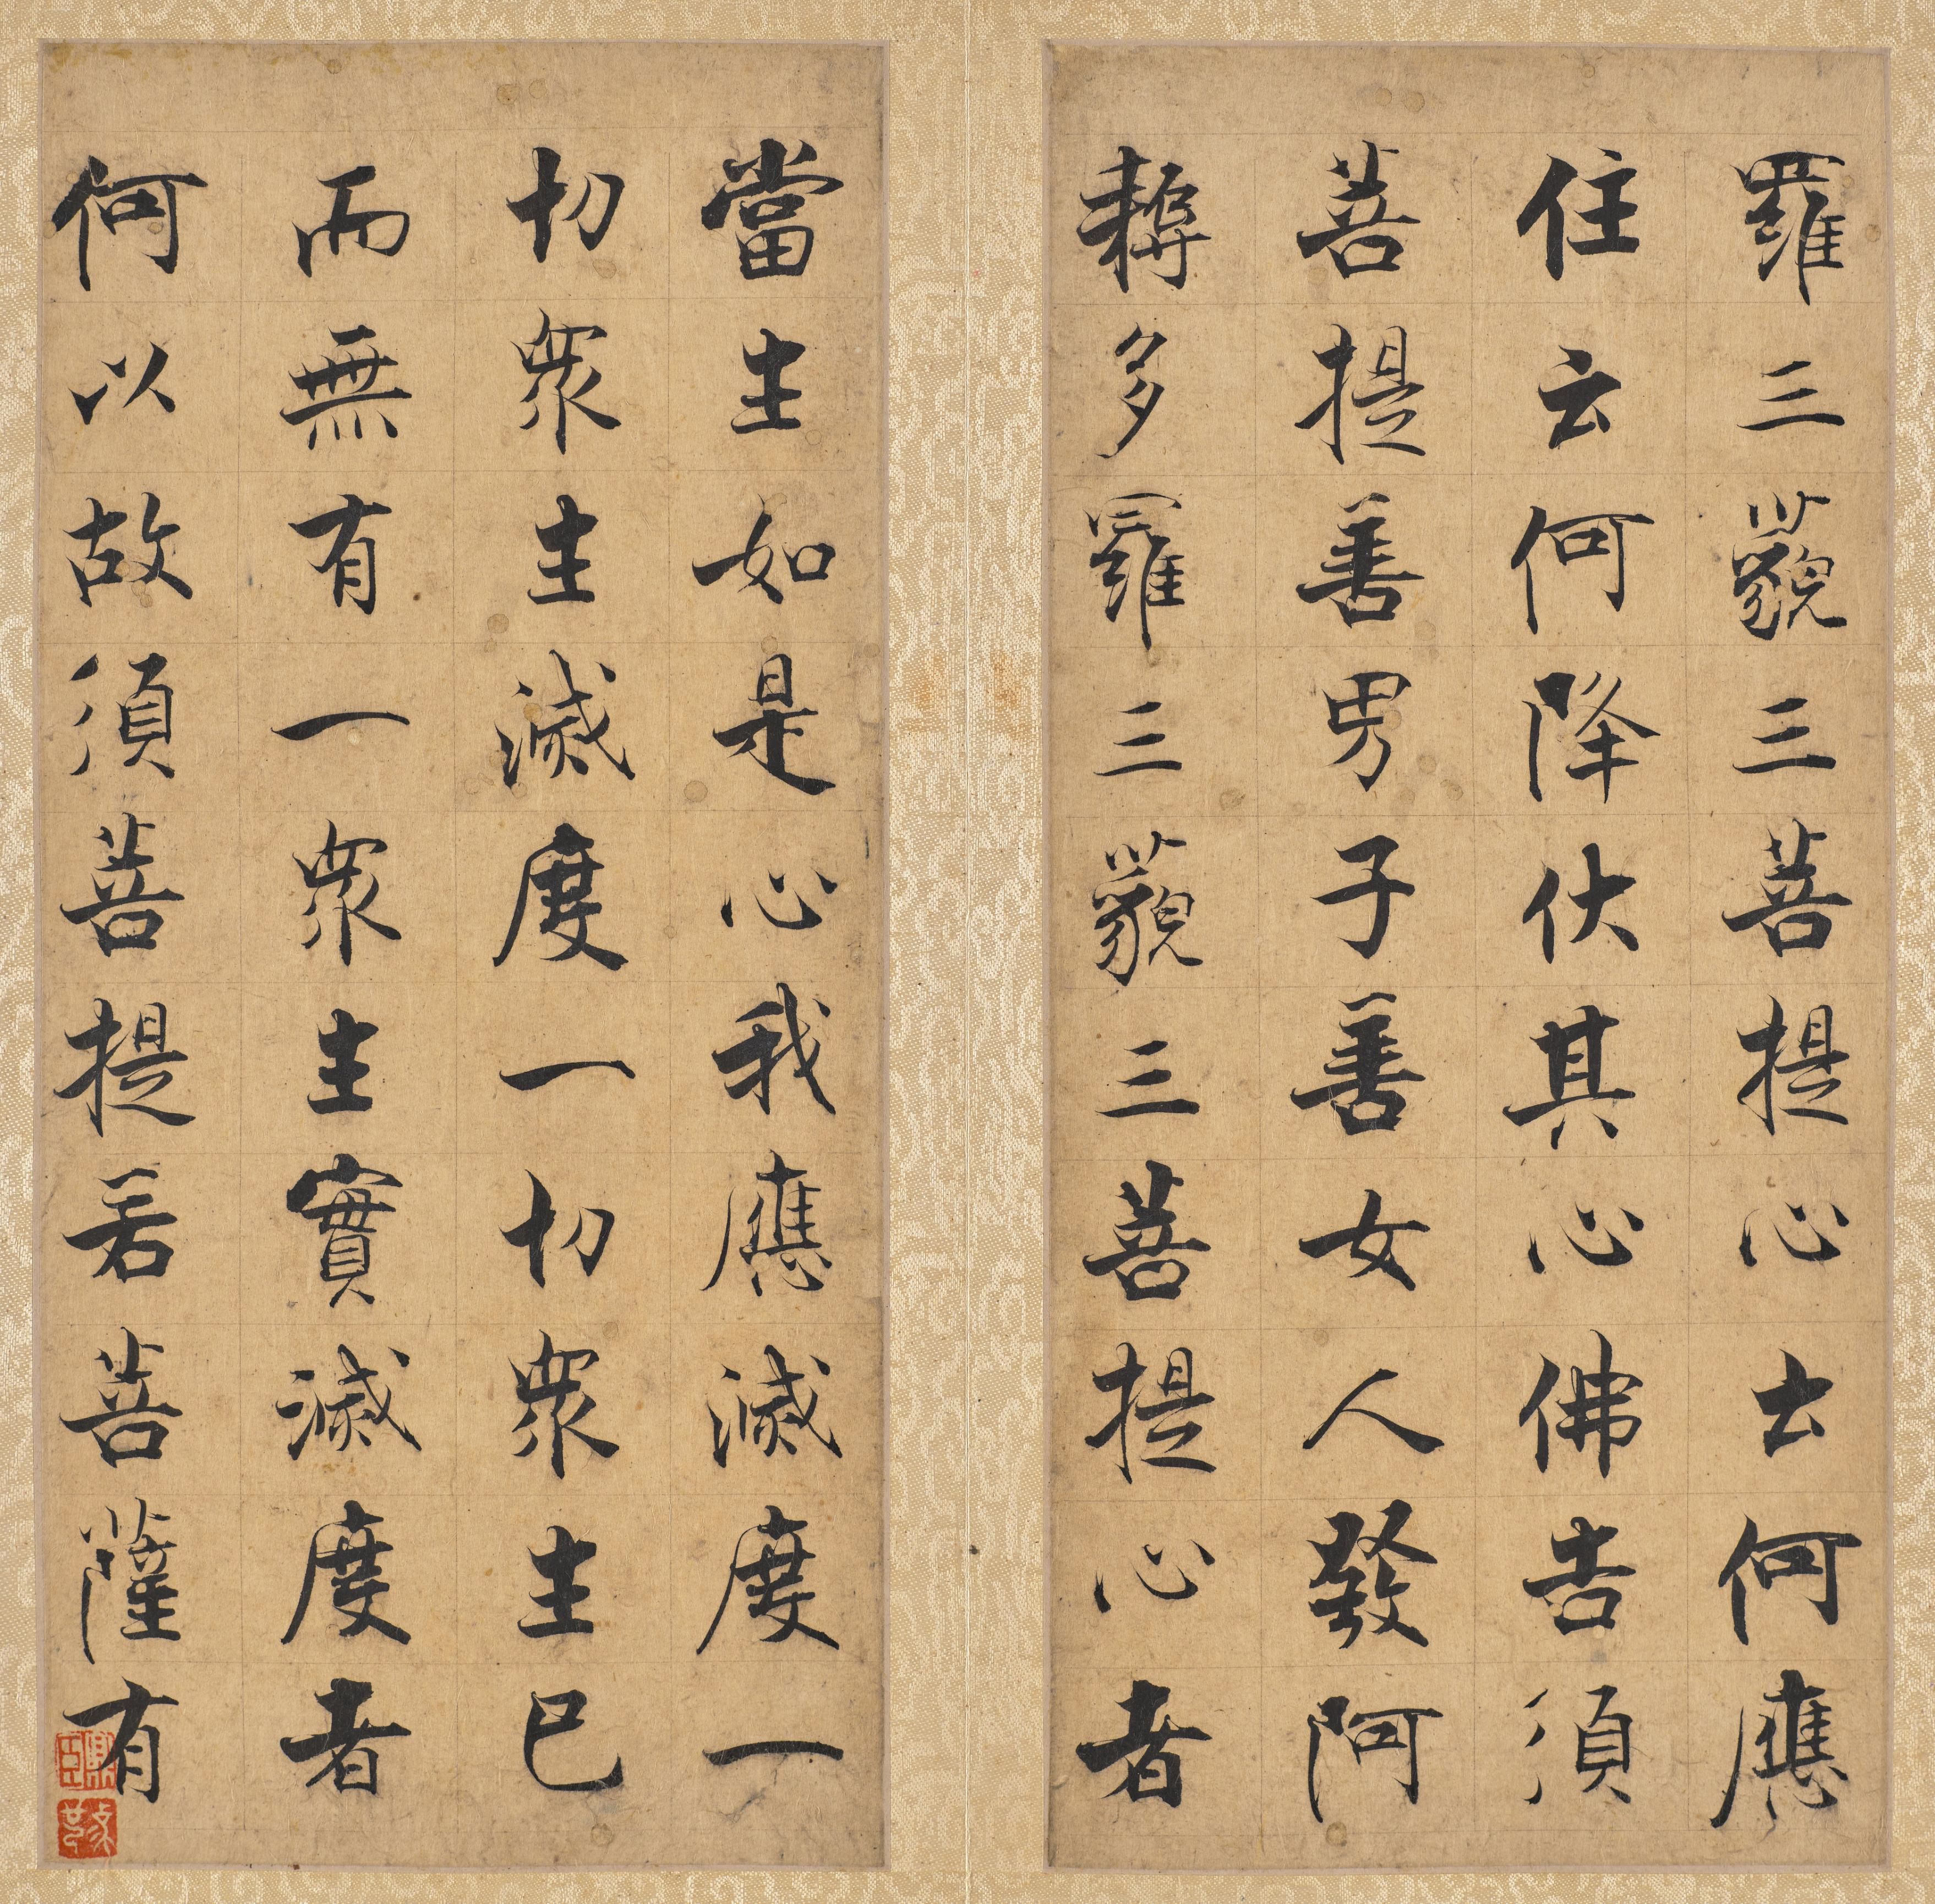 羅三藐三菩提心云何應
住云何降伏其心佛告須
菩提善男子善女人發阿
耨多羅三藐三菩提心者
當生如是心我應滅度一
切眾生滅度一切眾生已
而無有一眾生實滅度者
何以故須菩提若菩薩有